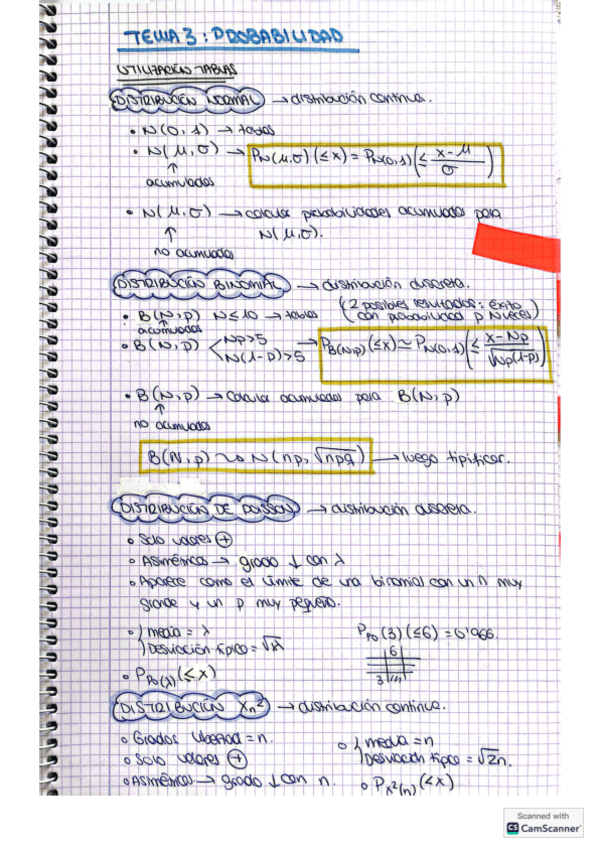 TEMA 3: PROBABILIDAD
UTILIZACIÓN TABLAS
DISTRIBUCIÓN NORMAL → distribución continua.
• N(0,1) → tablas
• N(μ,σ) → P_N(μ,σ) (≤x) = P_N(0,1) (≤ (x-μ)/σ)
↑
acumuladas
• N(μ,σ) → calcular probabilidades acumuladas para
↑ N(μ,σ).
no acumuladas
DISTRIBUCIÓN BINOMIAL → distribución discreta.
(2 posibles resultados: éxito
con probabilidad p N veces)
• B(N,p) N≤10 → tablas
acumuladas
• B(N,p) < Np>5 N(1-p)>5 → P_B(N,p) (≤x) ≃ P_N(0,1) (≤ (x-Np)/√Np(1-p))
• B(N,p) → Calcular acumuladas para B(N,p)
↑
no acumuladas
B(N,p) ~ N(np, √npq) → luego tipificar.
DISTRIBUCIÓN DE POISSON → distribución discreta.
• Solo valores ⊕
• Asimétrica → grado ↓ con λ
• Aparece como el límite de una binomial con un n muy
grande y un p muy pequeño.
• media = λ
Desviación típica = √λ
P_Po(3) (≤6) = 0'966.
6
3
• P_Po(λ) (≤x)
DISTRIBUCIÓN Xn² → distribución continua.
• Grados libertad = n.
• Solo valores ⊕
• Asimétrica → grado ↓ con n.
• media = n
Desviación típica = √2n.
• P_x²(n) (<x)
Scanned with
CS CamScanner